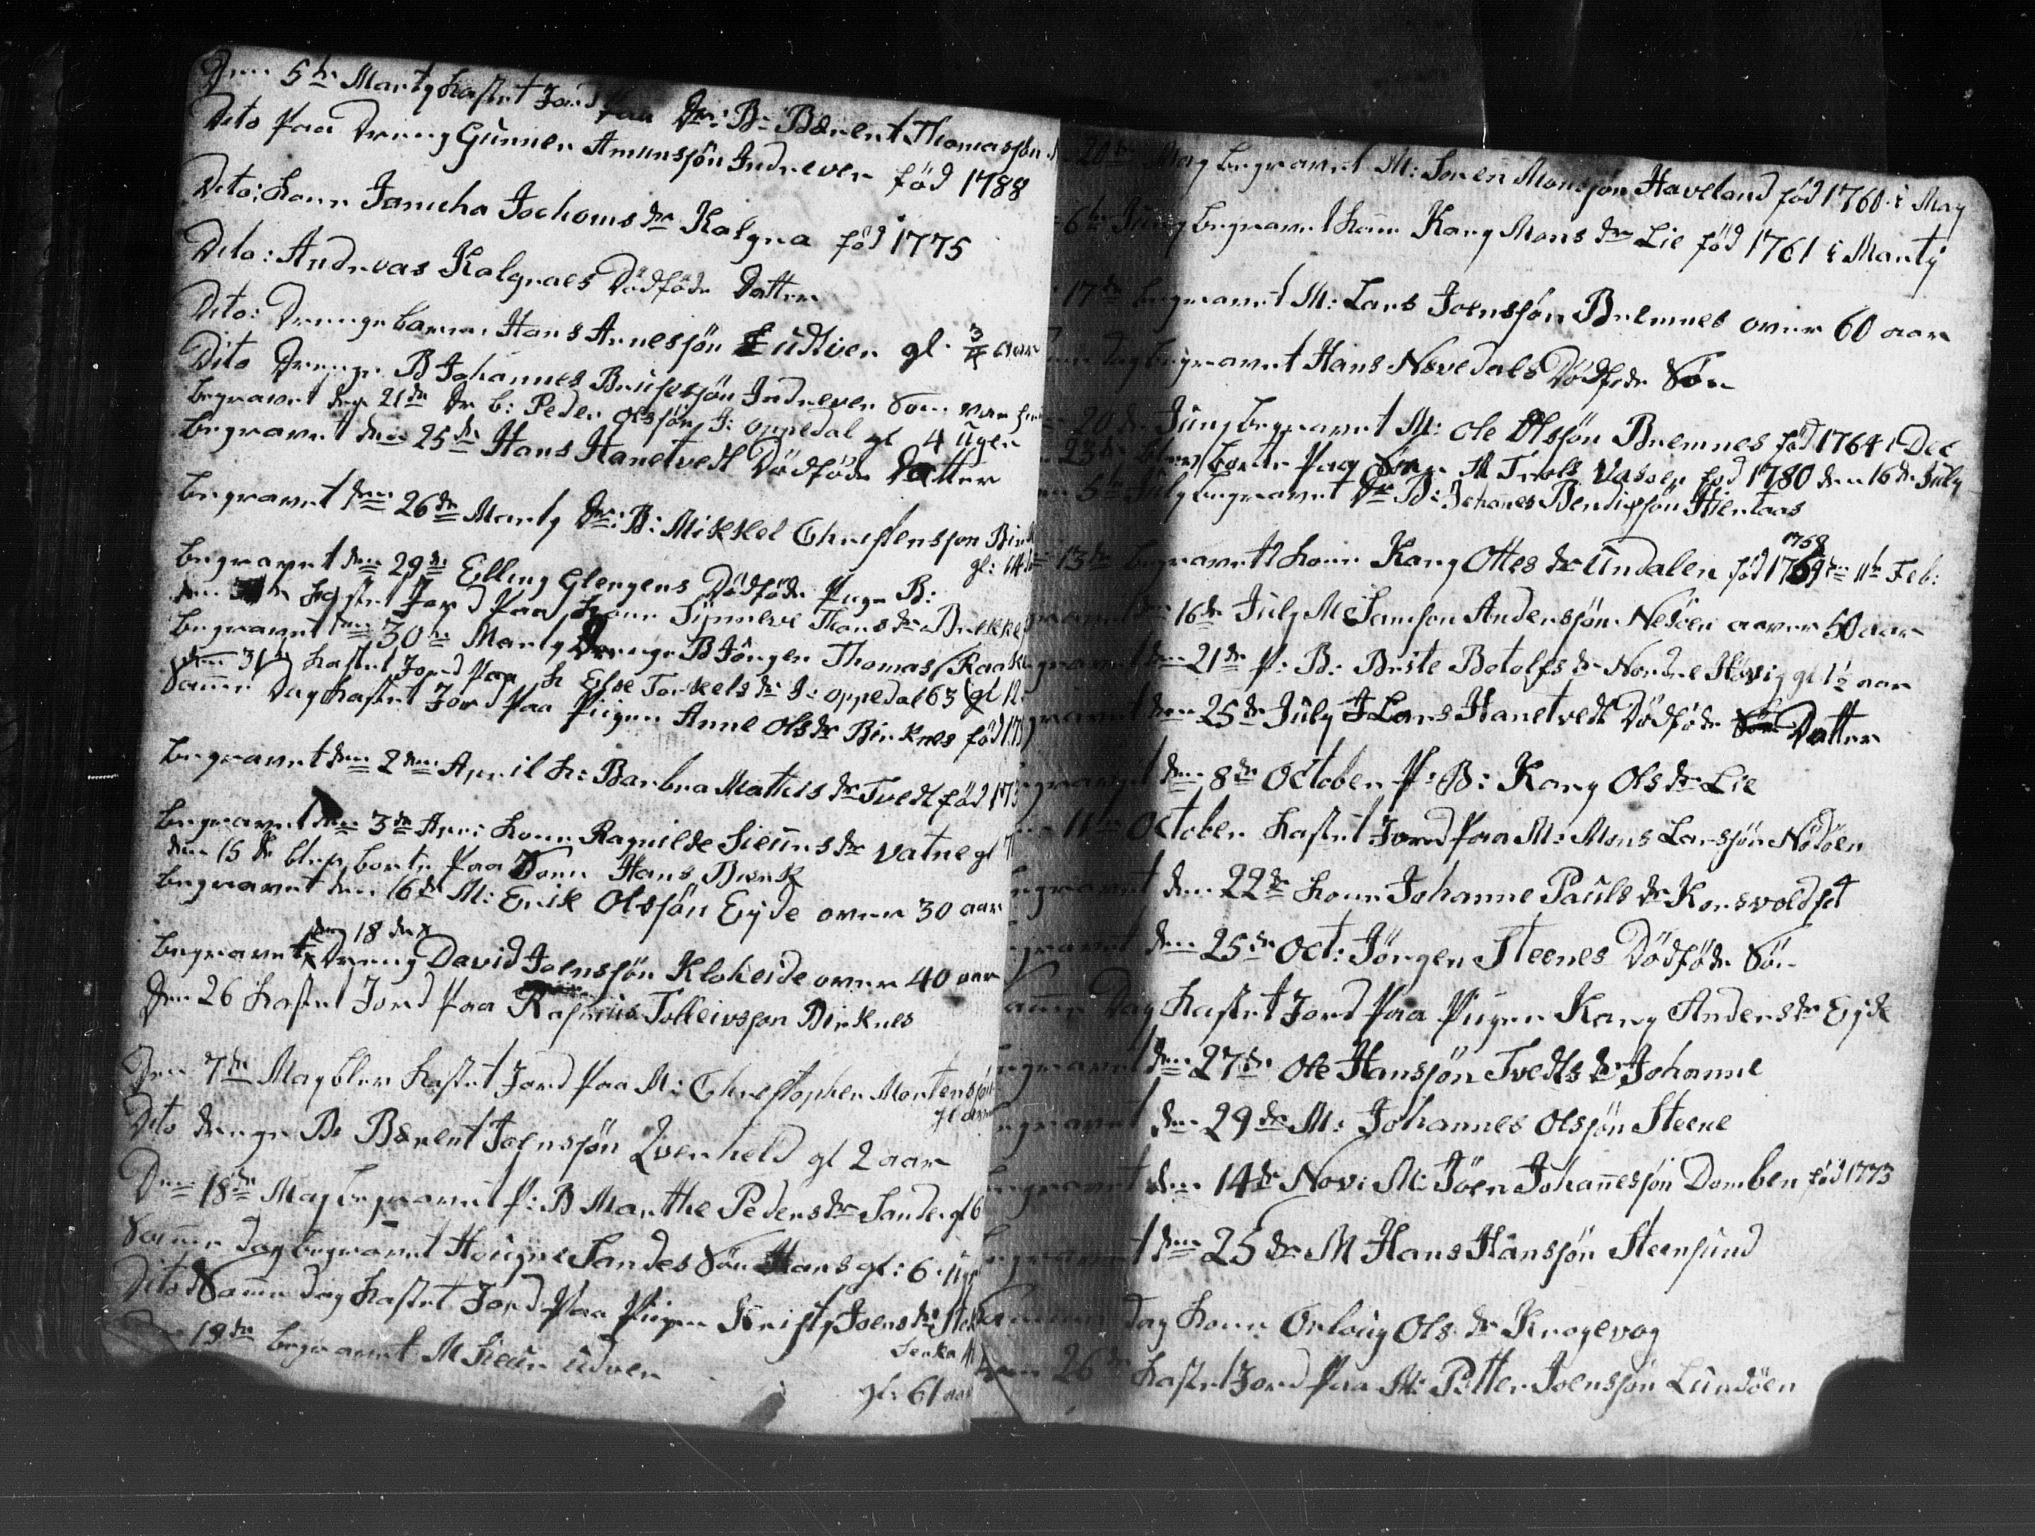 Den 5te Marty kastet Jord Paa Dr: B: Bærent Thomasjøn
Dito Paa Dreng Gunner Amunsjøn Indrever fød 1788
Dito: Kone Janicha Jochoms dr Kalgra fød 1775
Dito: Andreas Kalgraes Dødføde Datter
Dito: Drenge barn: Hans Arnesjøn Udtver gl: 3/4 aar
Dito Drenge B Johannes Brüsesjøn Indrever Som var
begravet den 21de Dr b: Peder Olssøn I: oppedal gl 4 Uger
begravet den 25de Hans Hanetvedt Dødføde Datter
begravet den 26de Marty Dr: B: Mikkel Christensson Birk
gl: 14
begravet den 29de Elling Glengens Dødføde Pige B:
den kastet Jord Paa Kone Synneve Thons dr Brekke
begravet den 30te Marty Drenge B Jørgen Thomas/ Raa
den 31te kastet Jord Paa k Else Torkels dr I: oppedal 63 gl 12
Samme Dag kastet Jord Paa Pigen Anne Ols dr Birknes fød 17
begravet den 2den April k: Barbra Mathis dr Tvedt fød 173
begravet den 3de Apr: Kone Ragnilde Sieurs dr Vatne gl
den 15de blev borte Paa Søen Hans Birk
begravet den 16de M: Erik Olsjøn Eyde over 30 aar
den 18 de
begravet Dreng David Joensjøn Klokeide over 40 aar
Den 26 kastet Jord Paa Rasmus Tolleivsson Birknes
Den 7de May blev kastet Jord Paa M: Christopher Mortensjøn
gl
Dito drenge B Bærent Joensjøn Qvenheld gl 2 aar
Den 18de May begravet P: B Marthe Peders dr Sande gl 6
Samme Dag begravet Hougne Sandes Søn Hans gl: 6 Uger
Dito Samme dag kastet Jord Paa Pigen Kristj Joens dr
19de begravet M Sieur Udver
gl: 61 aar
20de May begravet M: Soren Monsjøn Haveland fød 1760 i May
6te Juny begravet kone Kary Mons dr Lie fød 1761 i Marty
17de begravet M: Lars Joensjøn Bremnes over 60 aar
dag begravet Hans Nøvedals Dødføde Søn
20de Juny begravet M: Ole Olsjøn Bremnes fød 1764 i Dec
23de blev borte Paa Søen M Trols Vasøe fød 1780 den 16de July
5te July begravet Dr B: Johanes Bendixsjøn Hientaas
1758
13de begravet kone Kary Ottes dr Undalen fød 1769 den 11te Feb:
16de July M: Samson Andersjøn Nesøen aaver 50 aar
begravet den 21de P: B: Brite Botolfs dr Nordre Høvig gl 1 1/2 aar
begravet den 25de July Lars Hanetvedt Dødføde Datter
begravet den 8de October P: B: Kary Ols dr Lie
11te October kastet Jord Paa M: Mons Larsjøn Nødøen
begravet den 22de kone Johanne Pauls dr Korsvoldset
begravet den 25de Oct: Jørgen Steenes Dødføde Søn
Samme Dag kastet Jord Paa Pigen Kary Anders dr Eyde
begravet den 27de Ole Hansjøn Tvedts dr Johanne
begravet den 29de M: Johannes Olsjøn Steene
begravet den 14de Nov: M: Jøen Johannesjøn Domben fød 1773
begravet den 25de M Hans Hansjøn Steensund
Samme Dag kone Orloug Ols dr Krogevog
Den 26de kastet Jord Paa M: Petter Joensjøn Lundøen